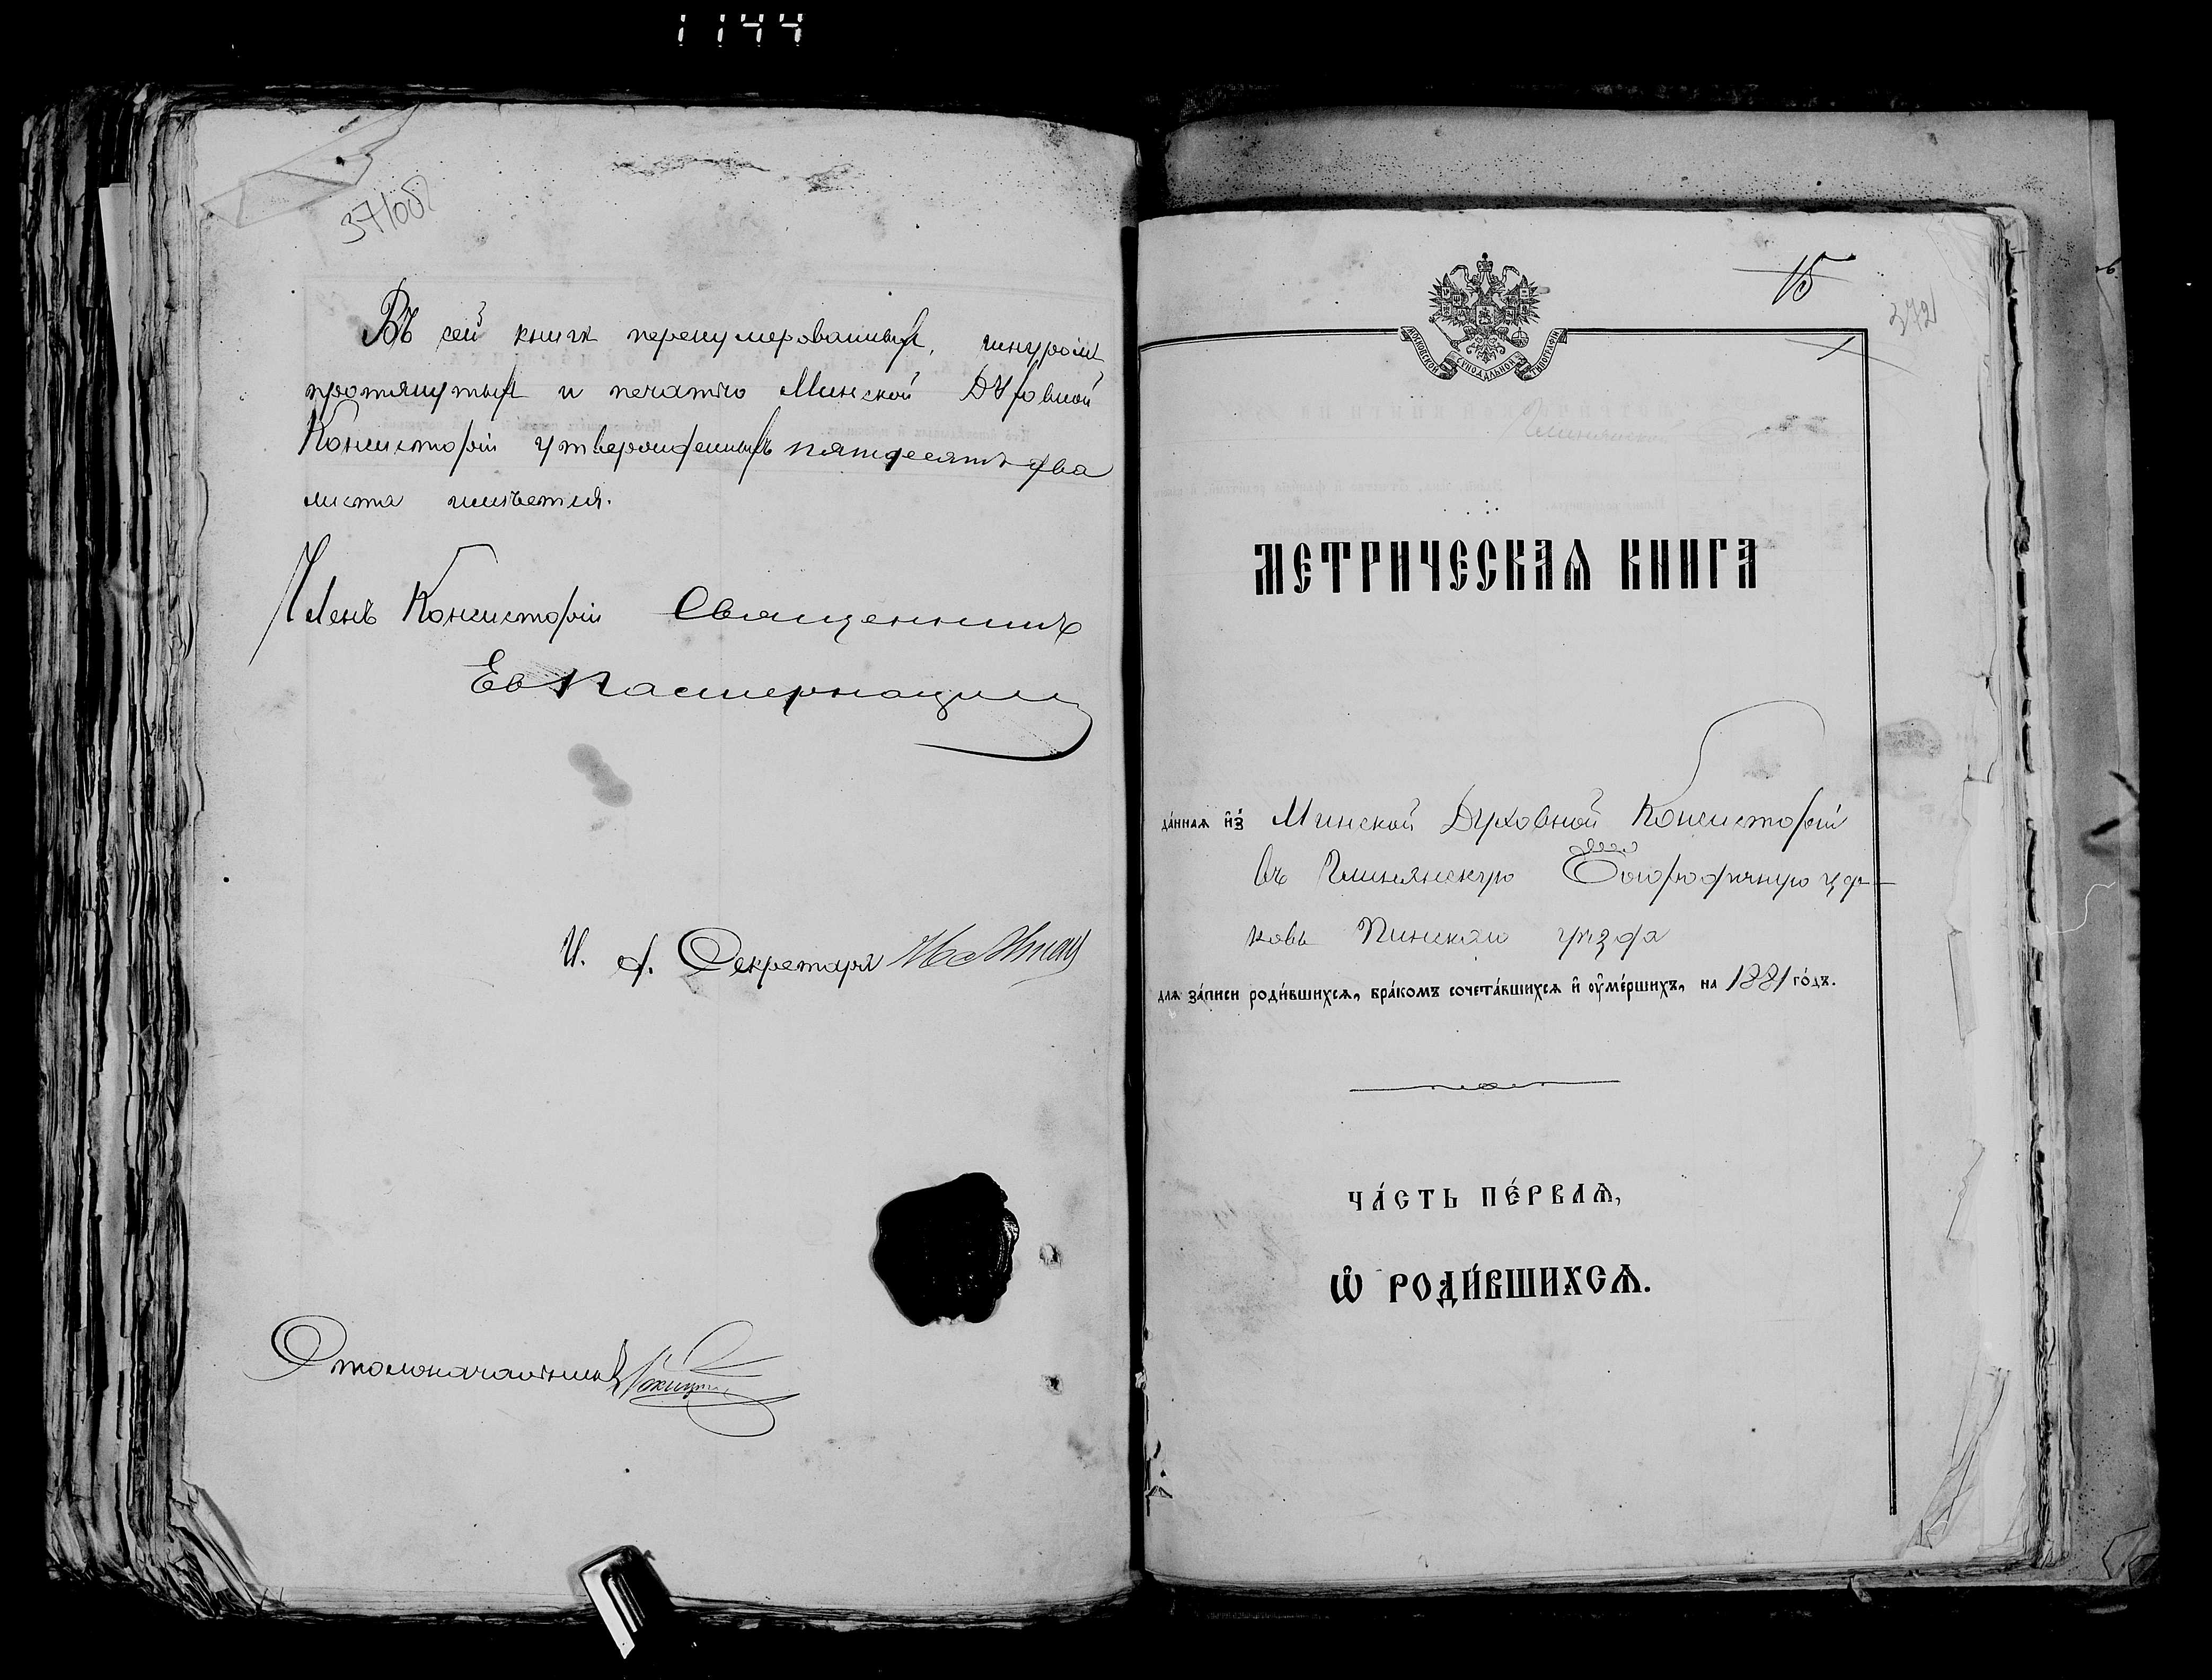 1144
371об
Въ сей книгѣ перенумерованныхъ, шнуромъ
протянутыхъ и печатію Минской Духовной
Консисторіи утвержденныхъ пятдесятъ два
листа имѣется.
Членъ Консисторіи Священникъ
Ев Пастернацкій
И. д. Секретаря
Столоначальникъ
15
372
1
МОСКОВСКОЙ СѴНОДАЛЬНОЙ ТИПОГРАФІИ
МЕТРИЧЕСКАѦ КНИГА
да́ннаѧ и҆з̾ Минской Духовной Консисторіи
въ Богородичную цер-
ковь Пинскаго уѣзда
для за́писи роди́вшихсѧ, бра́комъ сочета́вшихсѧ и҆ ᲂу҆ме́ршихъ, на 1881 го́дъ.
ЧА́СТЬ ПЕ́РВАѦ,
Ѽ РОДИ́ВШИХСѦ.